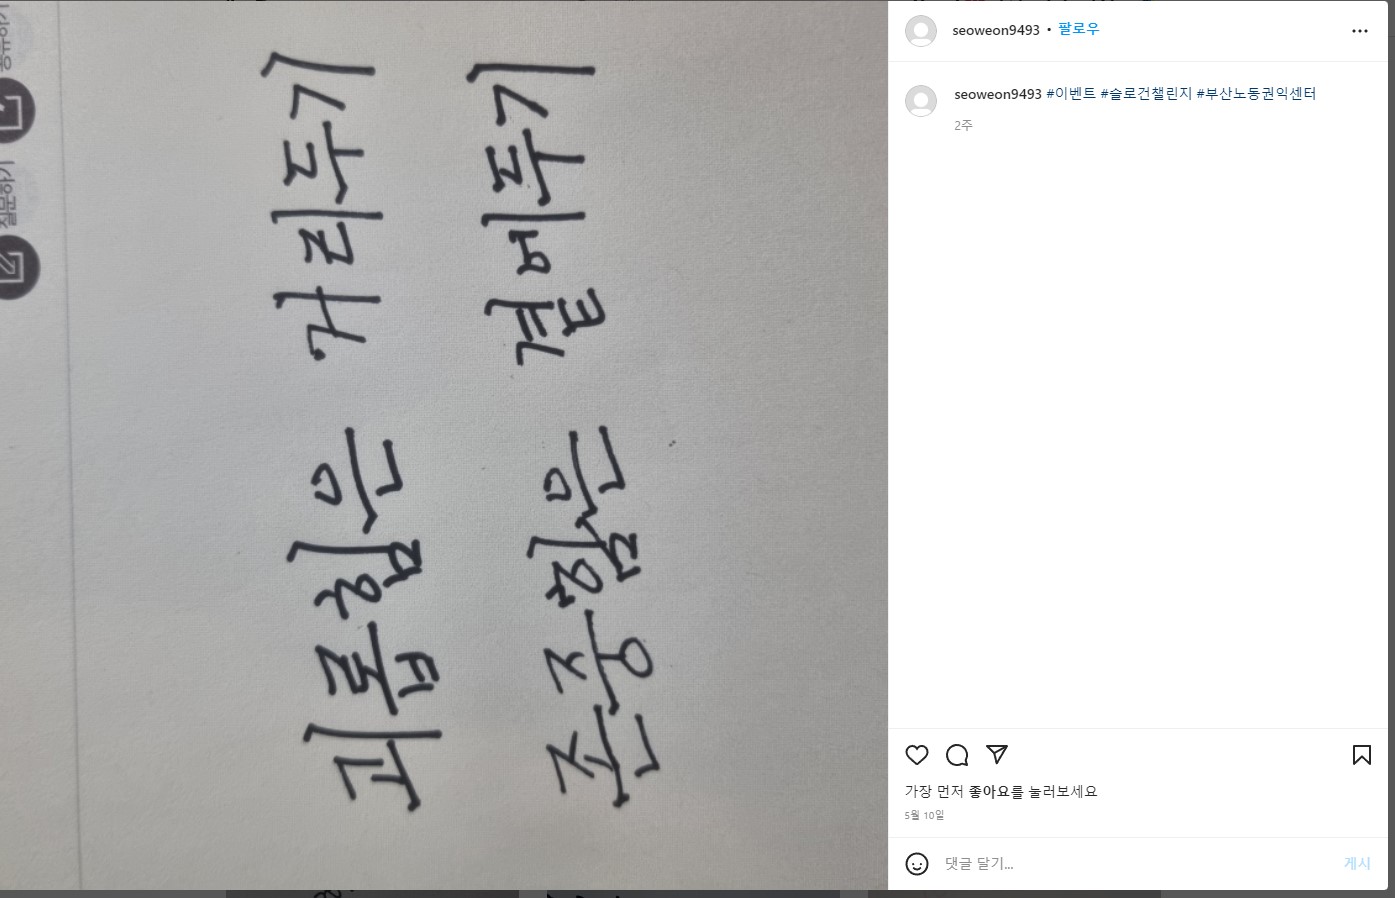 질문하기
괴롭힘은 거리두기
존중함은 곁에두기
seoweon9493 • 팔로우
seoweon9493 #이벤트 #슬로건챌린지 #부산노동권익센터
2주
가장 먼저 좋아요를 눌러보세요
5월 10일
댓글 달기...
게시